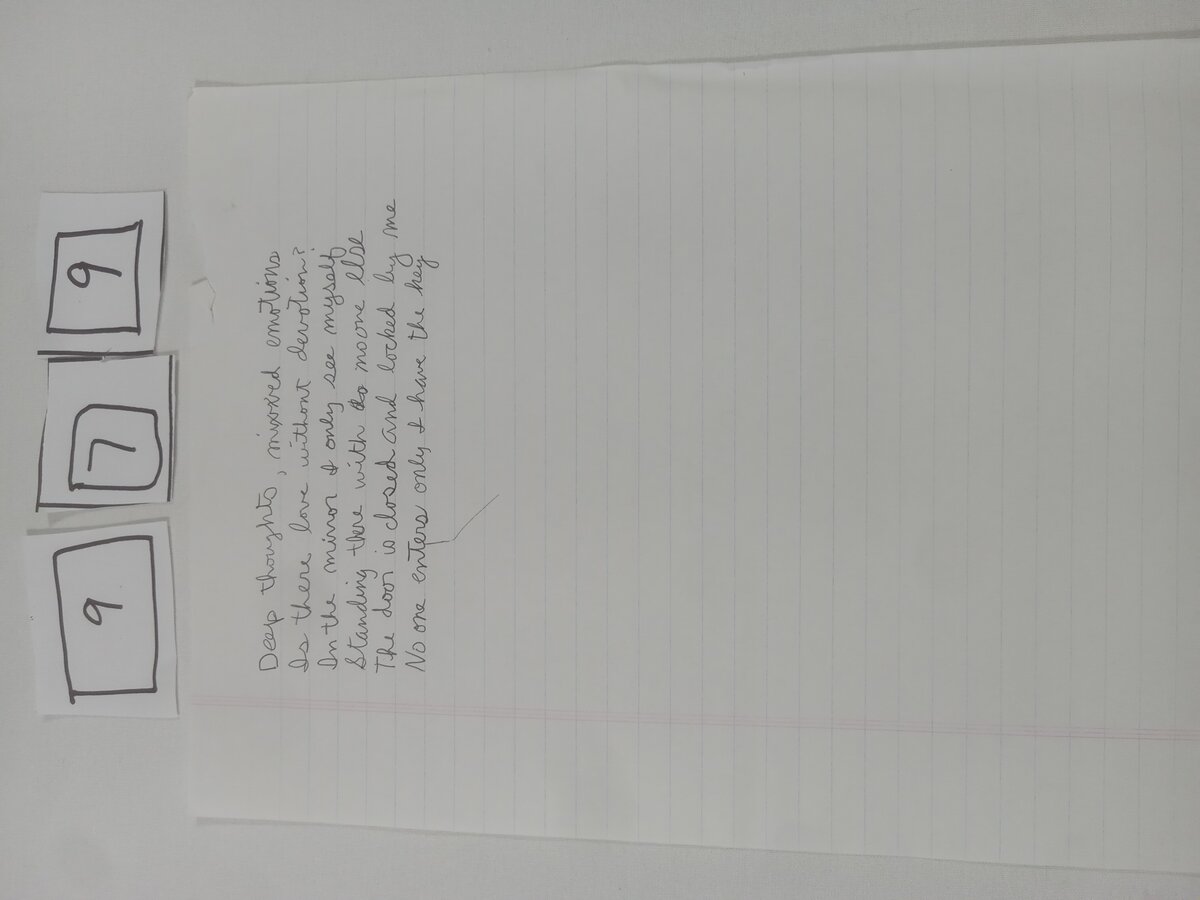 9 7 6
Deep thoughts, mixxed emotions
Is there love without devotion?
In the mirror I only see myself
Standing there with no one else
The door is closed and locked by me
No one enters only I have the key